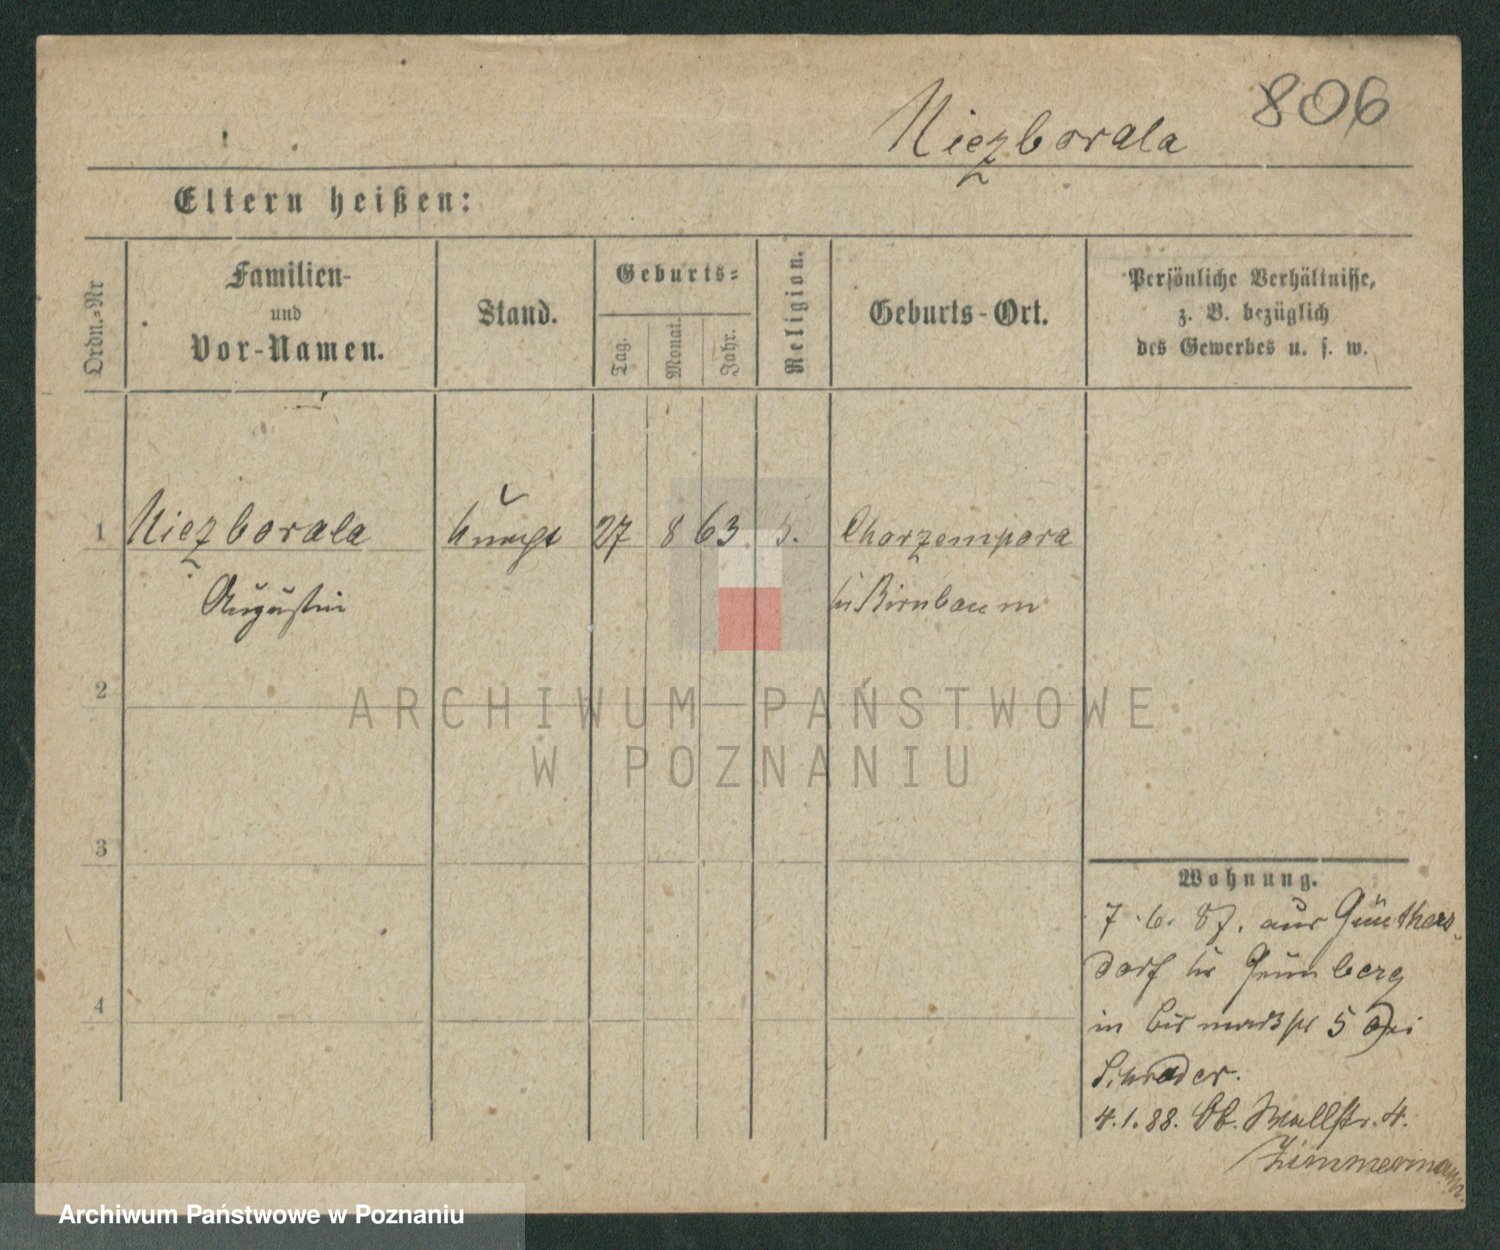 806
Niezborala
Eltern heißen:
Ordn.=Nr
Familien-
und
Vor-Namen.
Stand.
Geburts=
Tag.
Monat.
Jahr.
Religion.
Geburts-Ort.
Persönliche Verhältnisse,
z. B. bezüglich
des Gewerbes u. s. w.
1 Niezborala 27 8 63 Chorzempora
Augustin Birnbaum
2
3
4
ARCHIWUM PAŃSTWOWE
W POZNANIU
Wohnung.
7. 6. 87. aus Günthers-
dorf Grünberg
in Bismarckstr 5 bei
Schrader.
4. 1. 88. Ob. Wallstr. 4.
Zimmermann
Archiwum Państwowe w Poznaniu